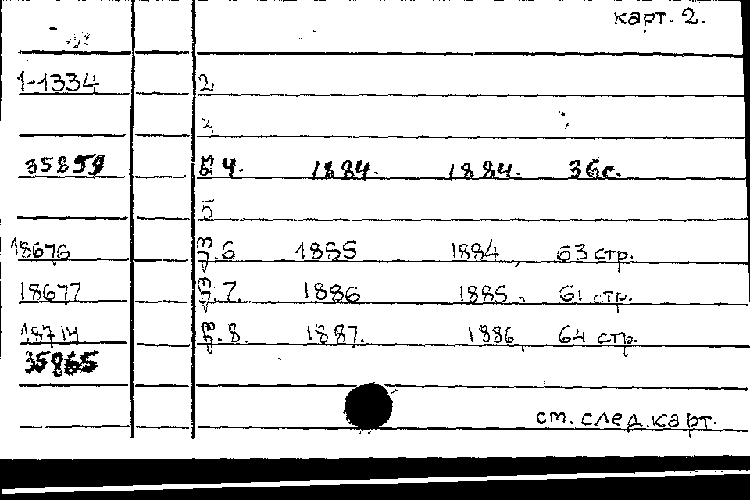 карт. 2.
1-1334 2
3
35859 4. 1884. 1884. 36с.
5
18676 6 1885 1884, 63 стр.
18677 7. 1886 1885, 61 стр.
18714 8. 1887. 1886, 64 стр.
35865
см. след. карт.